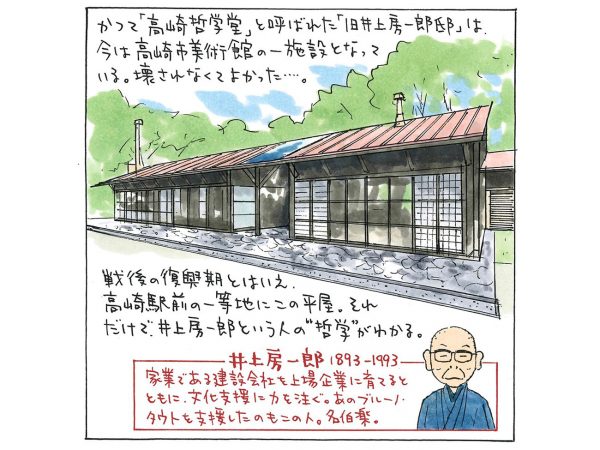 かつて「高崎哲学堂」と呼ばれた「旧井上房一郎邸」は、
今は高崎市美術館の一施設となって
いる。壊されなくてよかった…。
戦後の復興期とはいえ、
高崎駅前の一等地にこの平屋。それ
だけで、井上房一郎という人の“哲学”がわかる。
井上房一郎 1893-1993
家業である建設会社を上場企業に育てると
ともに、文化支援に力を注ぐ。あのブルーノ・
タウトを支援したのもこの人。名伯楽。